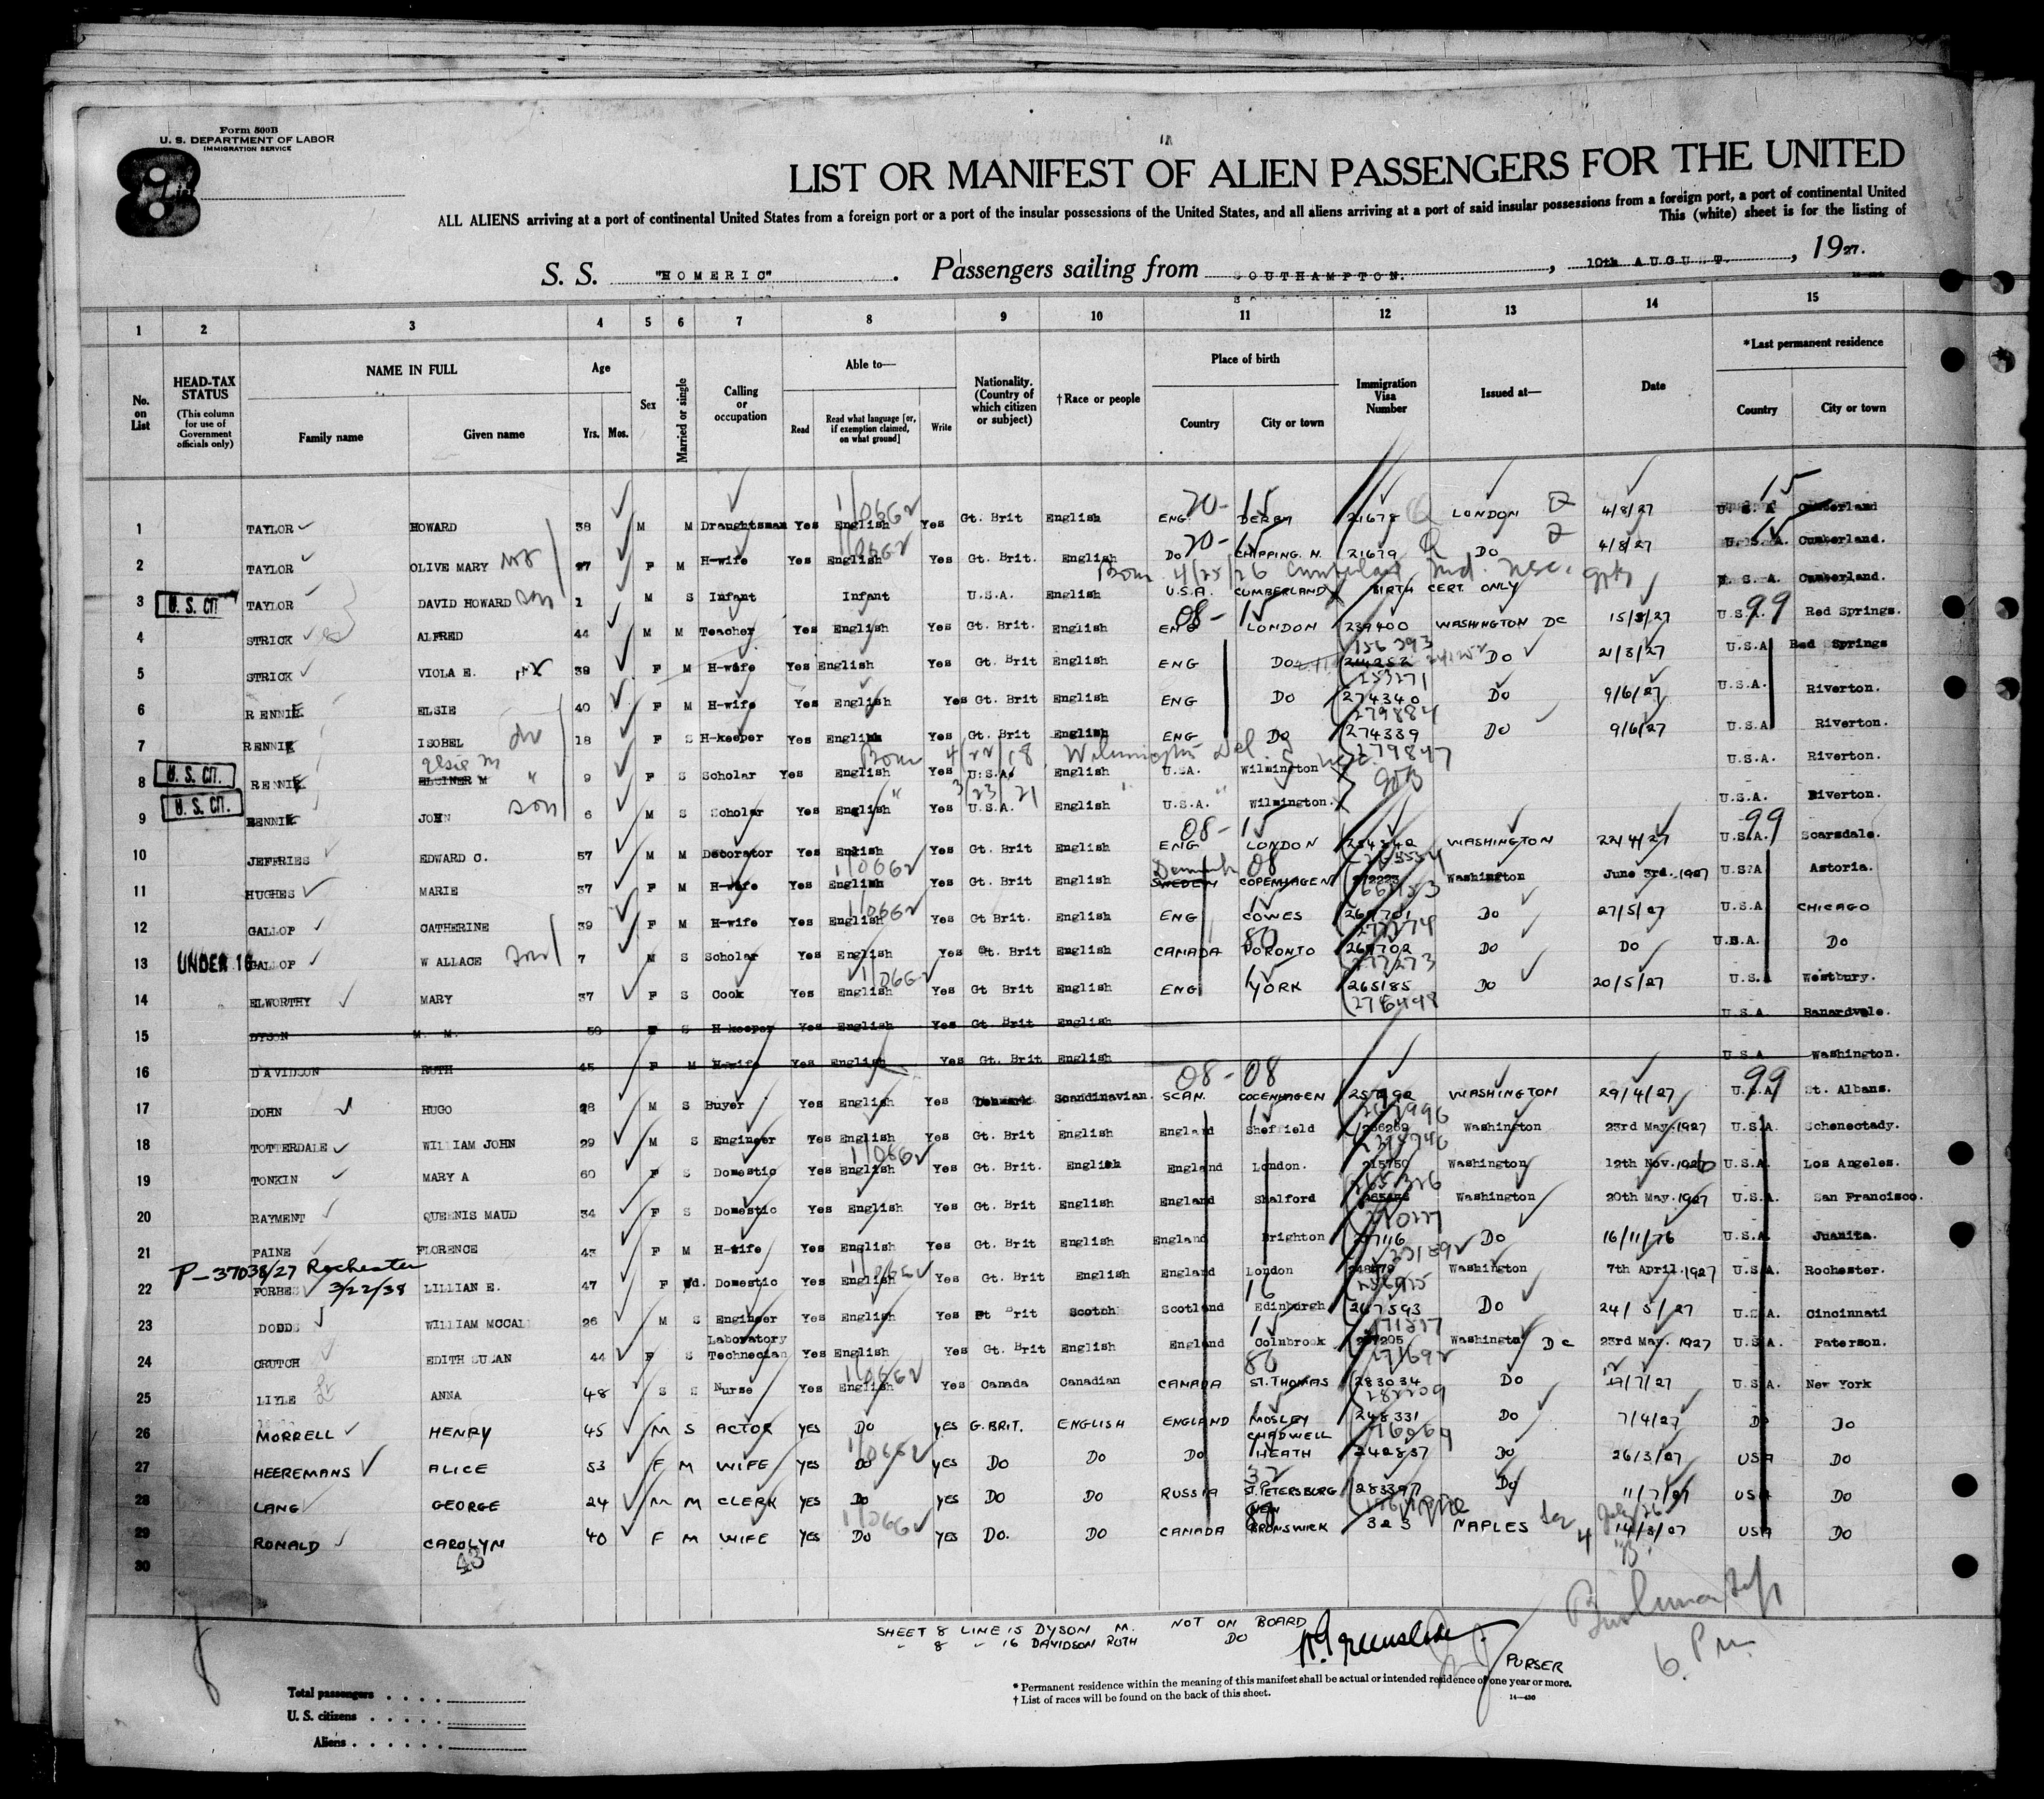 Form 500B
U. S. DEPARTMENT OF LABOR
IMMIGRATION SERVICE
8
LIST OR MANIFEST OF ALIEN PASSENGERS FOR THE UNITED
ALL ALIENS arriving at a port of continental United States from a foreign port or a port of the insular possessions of the United States, and all aliens arriving at a port of said insular possessions from a foreign port, a port of continental United
This (white) sheet is for the listing of
S. S. "HOMERIC". Passengers sailing from SOUTHAMPTON., 10th AUGUST., 1927.
1 2 3 4 5 6 7 8 9 10 11 12 13 14 15
No. on List
HEAD-TAX STATUS (This column for use of Government officials only)
NAME IN FULL Family name Given name
Age Yrs. Mos.
Sex
Married or single
Calling or occupation
Able to— Read Read what language [or, if exemption claimed, on what ground] Write
Nationality. (Country of which citizen or subject)
†Race or people
Place of birth Country City or town
Immigration Visa Number
Issued at—
Date
*Last permanent residence Country City or town
1 TAYLOR HOWARD 38 M M Draughtsman Yes English Yes Gt. Brit English ENG. DERBY 21678 LONDON 4/8/27 U.S.A Cumberland
2 TAYLOR OLIVE MARY 27 F M H-wife Yes English Yes Gt. Brit. English DO CHIPPING N. 21679 DO 4/8/27 U.S.A. Cumberland.
Born 4/25/26 Cumberland Md.
3 U.S. CIT. TAYLOR DAVID HOWARD son 1 M S Infant Infant U.S.A. English U.S.A. CUMBERLAND BIRTH CERT. ONLY U.S.A. Cumberland.
4 STRICK ALFRED 44 M M Teacher Yes English Yes Gt. Brit. English ENG LONDON 239400 WASHINGTON DC 15/3/27 U.S.A. Red Springs.
5 STRICK VIOLA E. 39 F M H-wife Yes English Yes Gt. Brit English ENG DO DO 21/3/27 U.S.A Red Springs
6 RENNIE ELSIE 40 F M H-wife Yes English Yes Gt. Brit English ENG DO 274340 DO 9/6/27 U.S.A. Riverton.
7 RENNIE ISOBEL 18 F S H-keeper Yes English Yes Gt. Brit English ENG DO 274339 DO 9/6/27 U.S.A Riverton.
Born 4/22/18 Wilmington Del
8 U.S. CIT. RENNIE Elsie M 9 F S Scholar Yes English Yes U.S.A. English U.S.A. Wilmington U.S.A. Riverton.
3/23/21
9 U.S. CIT. RENNIE JOHN son 6 M S Scholar Yes English Yes U.S.A. English U.S.A. Wilmington. U.S.A. Riverton.
10 JEFFRIES EDWARD C. 57 M M Decorator Yes English Yes Gt. Brit English ENG LONDON WASHINGTON 22/4/27 U.S.A. Scarsdale.
11 HUGHES MARIE 37 F M H-wife Yes English Yes Gt. Brit English SWEDEN COPENHAGEN 272223 Washington June 3rd. 1927 U.S.A Astoria.
12 GALLOP CATHERINE 39 F M H-wife Yes English Yes Gt Brit. English ENG COWES 268701 DO 27/5/27 U.S.A CHICAGO
13 UNDER 16 GALLOP WALLACE son 7 M S Scholar Yes English Yes Gt. Brit English CANADA TORONTO 268702 DO DO U.S.A. DO
14 ELWORTHY MARY 37 F S Cook Yes English Yes Gt Brit English ENG YORK 265185 DO 20/5/27 U.S.A Westbury.
15 DYSON M. M. 50 F S H-keeper Yes English Yes Gt. Brit English U.S.A. Banardvale.
16 DAVIDSON RUTH 45 F M H-wife Yes English Yes Gt. Brit English U.S.A Washington.
17 DOHN HUGO 28 M S Buyer Yes English Yes Denmark Scandinavian. SCAN. COCENHAGEN WASHINGTON 29/4/27 U.S.A St. Albans.
18 TOTTERDALE WILLIAM JOHN 29 M S Engineer Yes English Yes Gt. Brit English England Sheffield 266269 Washington 23rd May. 1927 U.S.A Schenectady.
19 TONKIN MARY A 60 F S Domestic Yes English Yes Gt. Brit. English England London. 215750 Washington 12th Nov. 1926 U.S.A. Los Angeles.
20 RAYMENT QUEENIS MAUD 34 F S Domestic Yes English Yes Gt. Brit English England Shalford Washington 20th May. 1927 U.S.A. San Francisco.
21 PAINE FLORENCE 43 F M H-wife Yes English Yes Gt. Brit English England Brighton DO 16/11/26 U.S.A. Juanita.
P-37038/27 Rochester
22 FORBES 3/22/38 LILLIAN E. 47 F Wd. Domestic Yes English Yes Gt. Brit English England London Washington 7th April. 1927 U.S.A. Rochester.
23 DODDS WILLIAM MCCALL 26 M S Engineer Yes English Yes Gt Brit Scotch Scotland Edinburgh 267593 DO 24/5/27 U.S.A Cincinnati
24 CRUTCH EDITH SUSAN 44 F S Laboratory Technecian Yes English Yes Gt. Brit English England Colnbrook 267205 Washington DC 23rd May. 1927 U.S.A Paterson.
25 LIYLE ANNA 48 S S Nurse Yes English Yes Canada Canadian CANADA ST. THOMAS 283034 DO U.S.A. New York
26 MORRELL HENRY 45 M S ACTOR YES DO YES G.BRIT. ENGLISH ENGLAND MOSLEY 248331 DO 7/4/27 DO DO
27 HEEREMANS ALICE 53 F M WIFE YES DO YES DO DO DO CHADWELL HEATH 242857 DO 26/3/27 USA DO
28 LANG GEORGE 24 M M CLERK YES DO YES DO DO RUSSIA ST. PETERSBURG 283397 DO 11/7/27 USA DO
29 RONALD CAROLYN 40 F M WIFE YES DO YES DO. DO CANADA NEW BRONSWICK 323 NAPLES 14/3/27 USA DO
30 43
SHEET 8 LINE 15 DYSON M. NOT ON BOARD
" 8 " 16 DAVIDSON RUTH DO
PURSER
6. P m.
* Permanent residence within the meaning of this manifest shall be actual or intended residence of one year or more.
† List of races will be found on the back of this sheet.
14—430
Total passengers . . . .
U. S. citizens . . . . .
Aliens . . . . . .